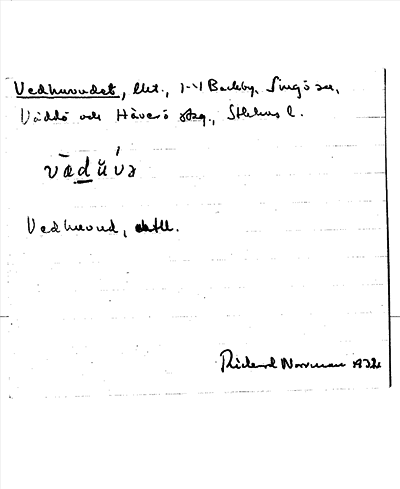 Vedhuvudet, 1-1 Backby, Singö sn,
Väddö och Häverö skg., Sthlms l.
vǟdŭ´və
Vedhuvud, 
Rickard Norrman 1932